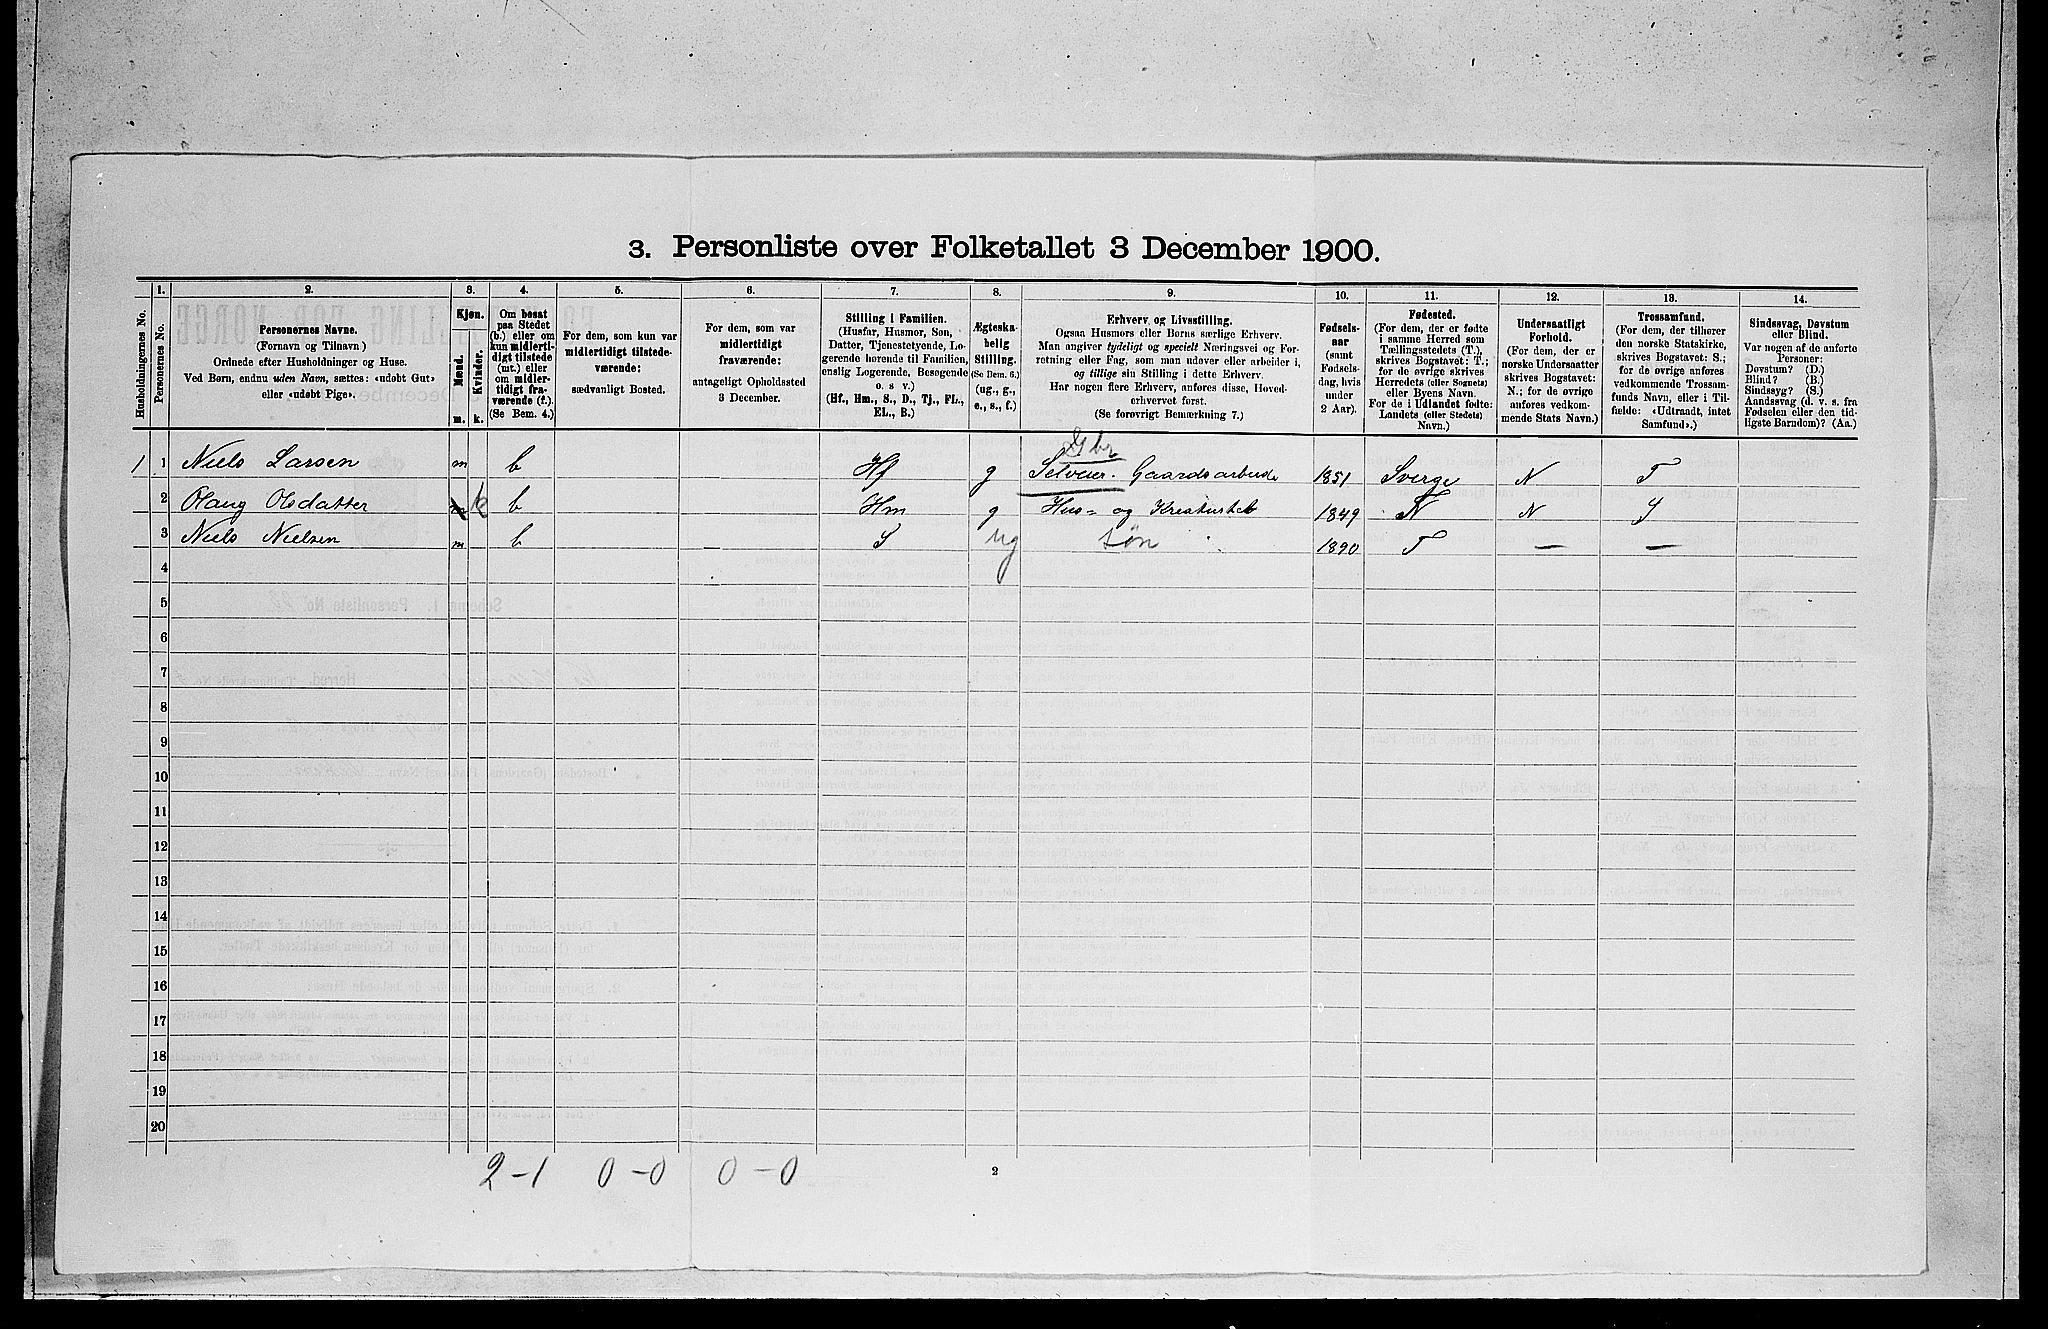 3. Personliste over Folketallet 3 December 1900.
1. 2. 3. 4. 5. 6. 7. 8. 9. 10. 11. 12. 13. 14.
Husholdningernes No.
Personernes No.
Personernes Navne.
(Fornavn og Tilnavn)
Ordnede efter Husholdninger og Huse.
Ved Børn, endnu uden Navn, sættes: «udøbt Gut»
eller «udøbt Pige».
Kjøn.
Mænd.
Kvinder.
m. k.
Om bosat
paa Stedet
(b.) eller om
kun midlerti-
digt tilstede
(mt.) eller
om midler-
tidigt fra-
værende (f.).
(Se Bem. 4.)
For dem, som kun var
midlertidigt tilstede-
værende:
sædvanligt Bosted.
For dem, som var
midlertidigt
fraværende:
antageligt Opholdssted
3 December.
Stilling i Familien.
(Husfar, Husmor, Søn,
Datter, Tjenestetyende, Lo-
gerende hørende til Familien,
enslig Logerende, Besøgende
o. s v.)
(Hf., Hm., S., D., Tj., FL.,
EL., B.)
Ægteska-
belig
Stilling.
(Se Bem. 6.)
(ug., g.,
e., s., f.)
Erhverv og Livsstilling.
Ogsaa Husmors eller Børns særlige Erhverv.
Man angiver tydeligt og specielt Næringsvei og For-
retning eller Fag, som man udøver eller arbeider i,
og tillige sin Stilling i dette Erhverv.
Har nogen flere Erhverv, anføres disse, Hoved-
erhvervet først.
(Se forøvrigt Bemærkning 7.)
Fødsels-
aar
(samt
Fødsels-
dag, hvis
under
2 Aar).
Fødested.
(For dem, der er fødte
i samme Herred som
Tællingsstedets (T.),
skrives Bogstavet: T.;
for de øvrige skrives
Herredets (eller Sognets)
eller Byens Navn.
For de i Udlandet fødte:
Landets (eller Stedets)
Navn.)
Undersaatligt
Forhold.
(For dem, der er
norske Undersaatter
skrives Bogstavet:
N.; for de øvrige
anføres vedkom-
mende Stats Navn.)
Trossamfund.
(For dem, der tilhører
den norske Statskirke,
skrives Bogstavet: S.;
for de øvrige anføres
vedkommende Trossam-
funds Navn, eller i Til-
fælde: «Udtraadt, intet
Samfund».)
Sindssvag, Døvstum
eller Blind.
Var nogen af de anførte
Personer:
Døvstum? (D.)
Blind? (B.)
Sindssyg? (S.)
Aandssvag (d. v. s. fra
Fødselen eller den tid-
ligste Barndom)? (Aa.)
Gbr
1 1 Niels Larsen m b Hf g Selveier. Gaardsarbeide 1851 Sverge N T
2 Olaug Olsdatter m k b Hm g Hus- og Kreaturstel 1849 N N S
3 Niels Nielsen m b S ug søn 1890 T — —
4
5
6
7
8
9
10
11
12
13
14
15
16
17
18
19
20
2-1 0-0 0-0
2